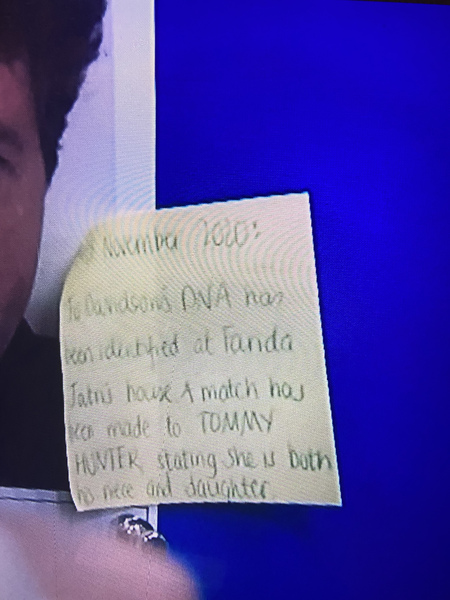 November 2020:
Jo Davidson's DNA has
been identified at Farida
Jatri's house A match has
been made to TOMMY
HUNTER, stating she is both
his niece and daughter.